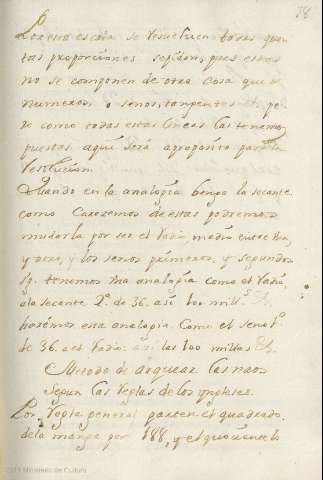 78
Por esta escala se resuelven todas quan
tas proporciones se pidan, pues estas
no se componen de otra cosa que de
numeros o senos, tangentes etc. pe
ro como todas estas lineas las tenemos
puestas aqui será aproposito para la
resolucion.
Quando en la analogia benga la secante
como carezemos de estas podremos
mudarla por ser el radio medio entre
y otro, y los senos primeros, y segundos
tenemos una analogia como el radio
a la secante 2ª. de 36. asi 100 mill.s
haremos esta analogia. Como el seno 1º.
de 36. al radio: asi las 100 millas
Metodo de arquear las naos
segun las reglas de los ingleses.
Por regla general parten el quadrado
de la manga por 188, y el quociente lo
2011 Ministerio de Cultura